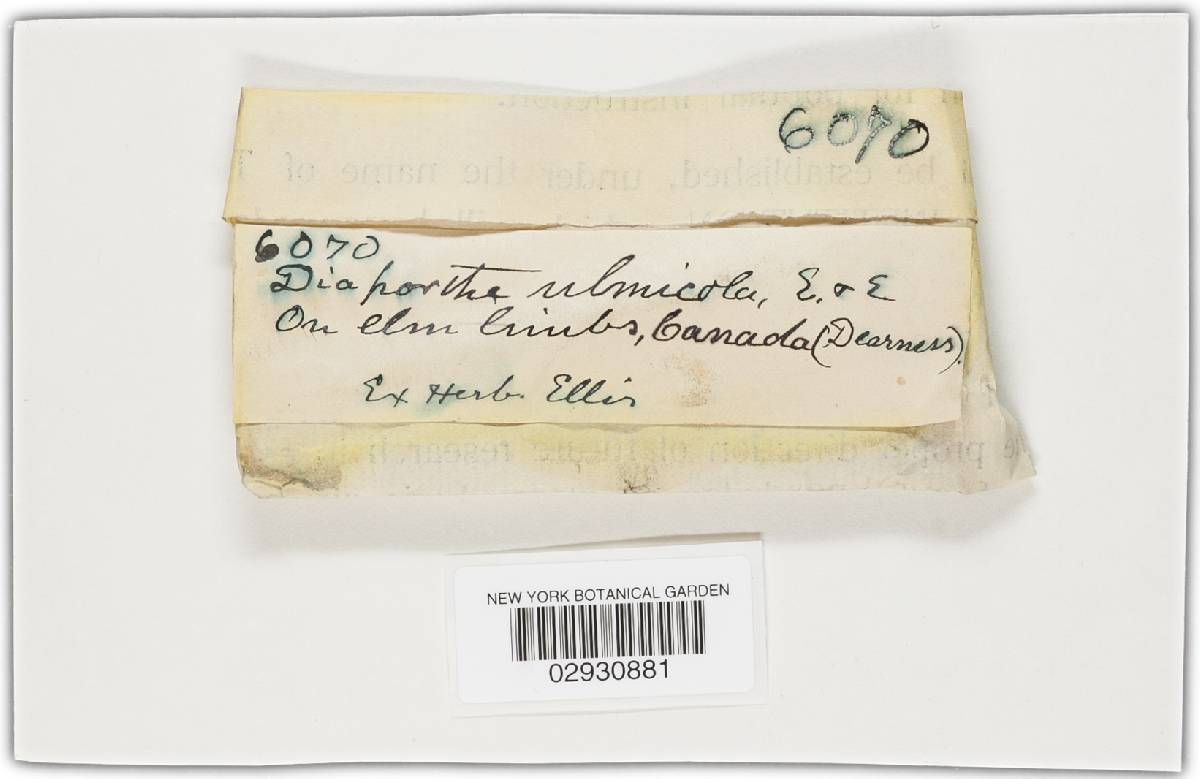 for popular instruction.
6070
be established, under the name of
6070
Diaporthe ulmicola, E. & E
On elm limbs, Canada (Dearness).
Ex Herb. Ellis
direction of future research
NEW YORK BOTANICAL GARDEN
02930881